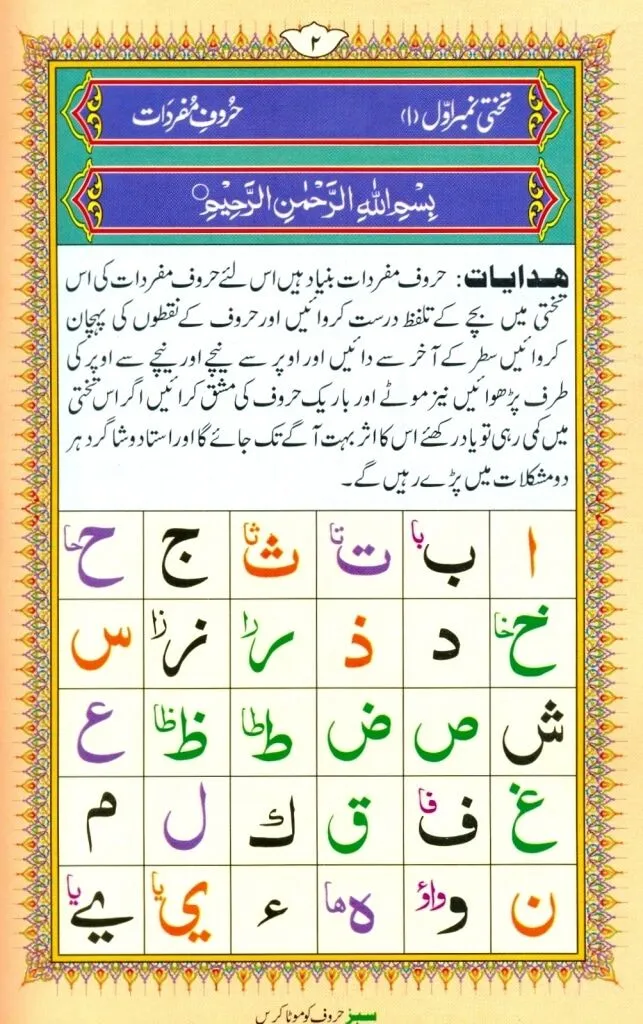 ۲
تختی نمبر اوّل (۱) حُروفِ مُفرَدَات
بِسْمِ اللّٰهِ الرَّحْمٰنِ الرَّحِیْمِ
هدایات: حروف مفردات بنیاد ہیں اس لئے حروف مفردات کی اس
تختی میں بچے کے تلفظ درست کروائیں اور حروف کے نقطوں کی پہچان
کروائیں سطر کے آخر سے دائیں اور اوپر سے نیچے اور نیچے سے اوپر کی
طرف پڑھوائیں نیز موٹے اور باریک حروف کی مشق کرائیں اگر اس تختی
میں کمی رہی تو یاد رکھئے اس کا اثر بہت آگے تک جائے گا اور استاد و شاگرد ہر
دو مشکلات میں پڑے رہیں گے۔
ا ب با ت تا ث ثا ج ح حا
خ خا د ذ ر را ز زا س
ش ص ض ط طا ظ ظا ع
غ ف فا ق ك ل م
ن و واؤ ه ها ء ي يا ے يا
سبز حروف کو موٹا کریں